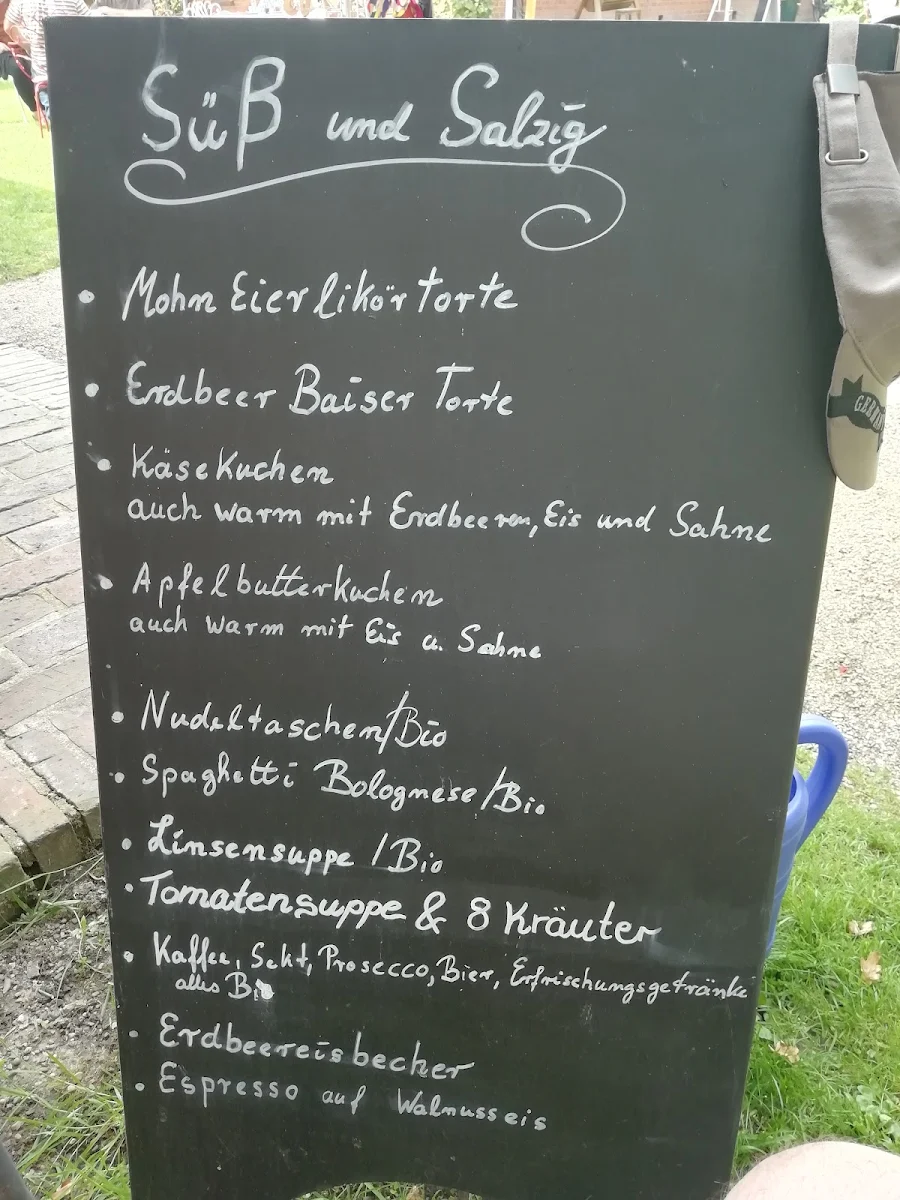 Süß und Salzig
• Mohn Eierlikör torte
• Erdbeer Baiser Torte
• Käsekuchen
auch warm mit Erdbeeren, Eis und Sahne
• Apfelbutterkuchen
auch warm mit Eis u. Sahne
• Nudeltaschen/Bio
• Spaghetti Bolognese/Bio
• Linsensuppe /Bio
• Tomatensuppe & 8 Kräuter
• Kaffee, Sekt, Prosecco, Bier, Erfrischungsgetränke
alles Bio
• Erdbeereisbecher
• Espresso auf Walnusseis